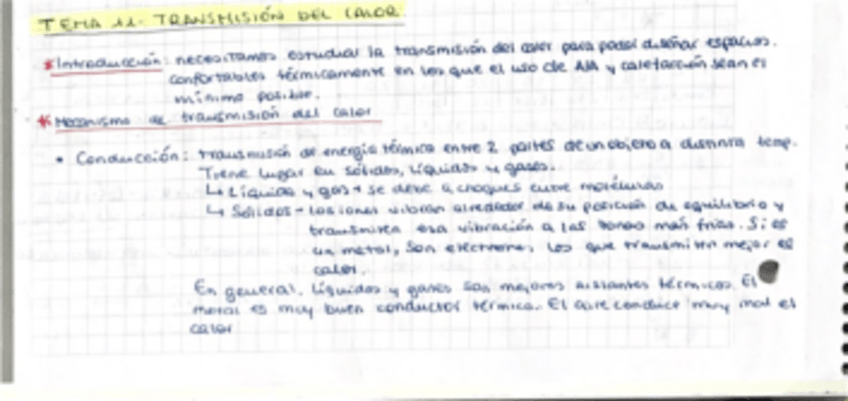 TEMA 11.- TRANSMISIÓN DEL CALOR.
* Introducción: necesitamos estudiar la transmisión del calor para poder diseñar espacios.
confortables térmicamente en los que el uso de AIA y calefacción sean el
mínimo posible.
* Mecanismo de transmisión del calor
• Conducción: transmisión de energía térmica entre 2 partes de un objeto a distinta temp.
Tiene lugar en sólidos, líquidos y gases.
↳ Líquido y gas → se debe a choques entre moléculas
↳ Sólidos → los iones vibran alrededor de su posición de equilibrio y
transmiten esa vibración a las zonas más frías. Si es
un metal, son electrones los que transmiten mejor el
calor.
En general, líquidos y gases son mejores aislantes térmicos. El
metal es muy buen conductor térmico. El aire conduce muy mal el
calor